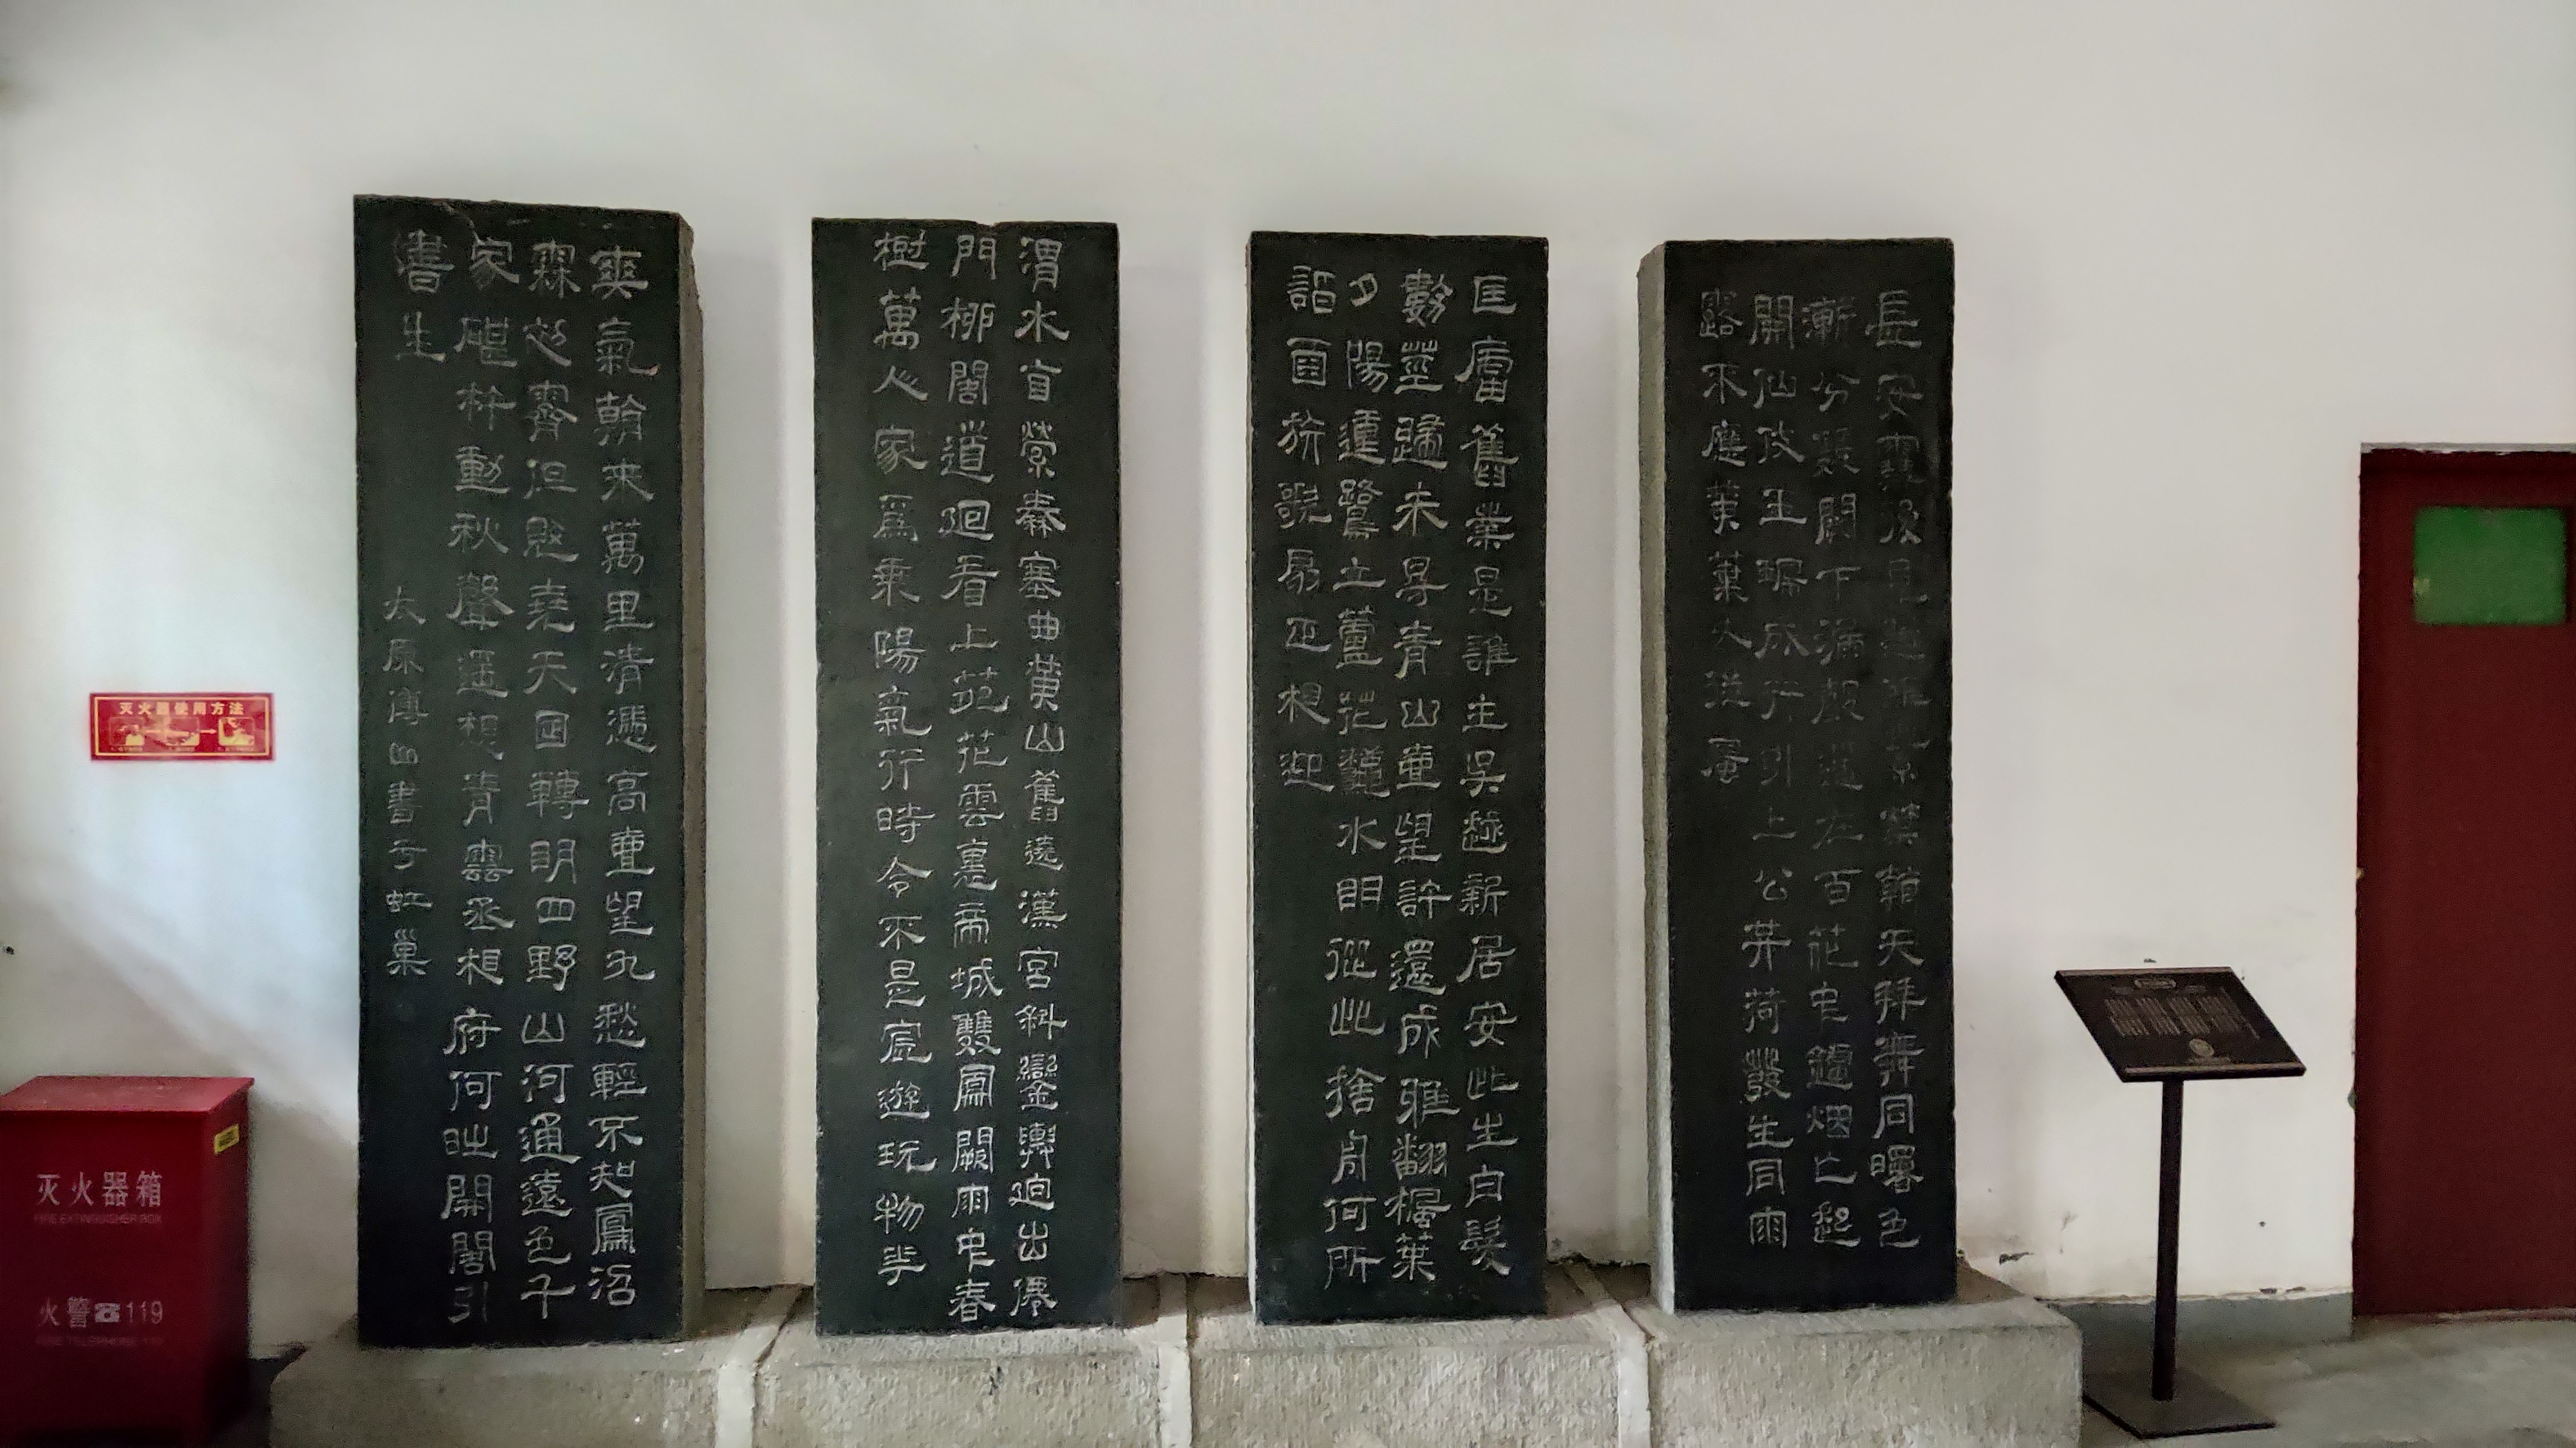 長安雪後見歸鴻紫禁朝天拜舞同曙色
漸分雙闕下漏聲遙在百花中鑪烟乍起
開仙仗玉珮成行引上公共荷發生同雨
露不應黄葉久從風
匡廬舊業是誰主吳越新居安此生白髮
數莖歸未得青山壹望計還成雅翻楓葉
夕陽動鷺立蘆花秋水明從此捨舟何所
詣酉旂歌扇正相迎
渭水自縈秦塞曲黄山舊遶漢宮斜鑾輿迥出僊
門柳閣道迴看上苑花雲裏帝城雙鳳闕雨中春
樹萬人家爲乘陽氣行時令不是宸遊玩物華
爽氣朝来萬里清憑高壹望九愁輕不知鳳沼
霖初霽但覺堯天日轉明四野山河通遠色千
家碪杵動秋聲遥想青雲丞相府何時開閣引
書生
太原傅山書于虹巢
灭火器使用方法
灭火器箱
FIRE EXTINGUISHER BOX
火警☎119